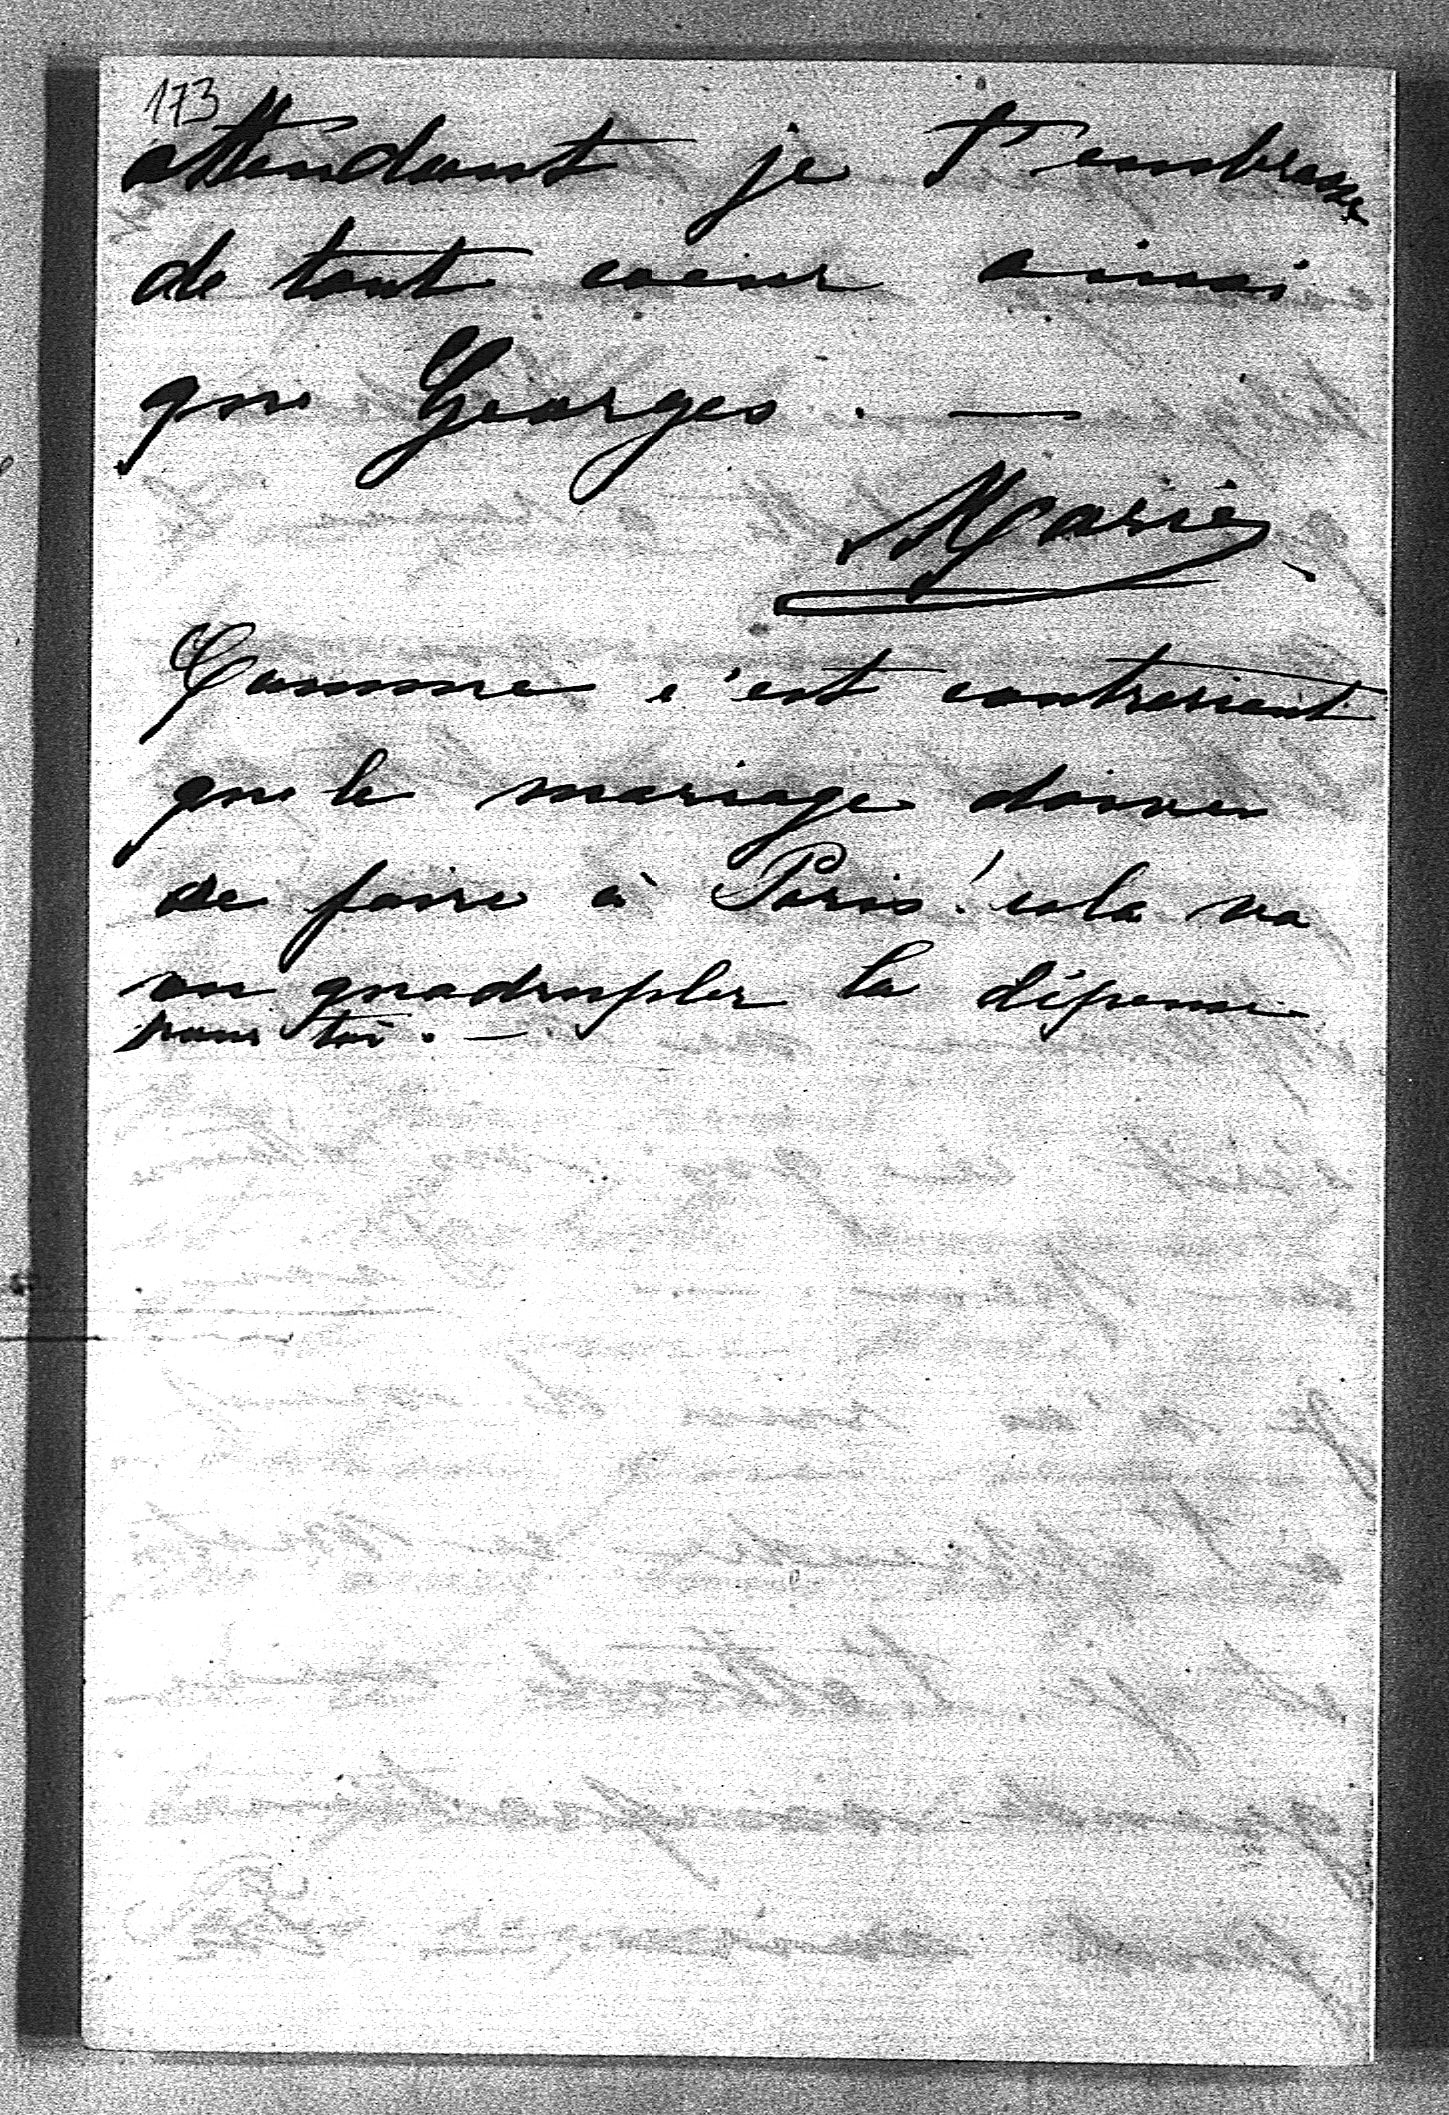 173
attendant je t'embrasse
de tout coeur ainsi
que Georges. —
Marie
Comme c'est contrariant
que le mariage doive
se faire à Paris! cela va
en quadrupler la dépense
pour toi. —